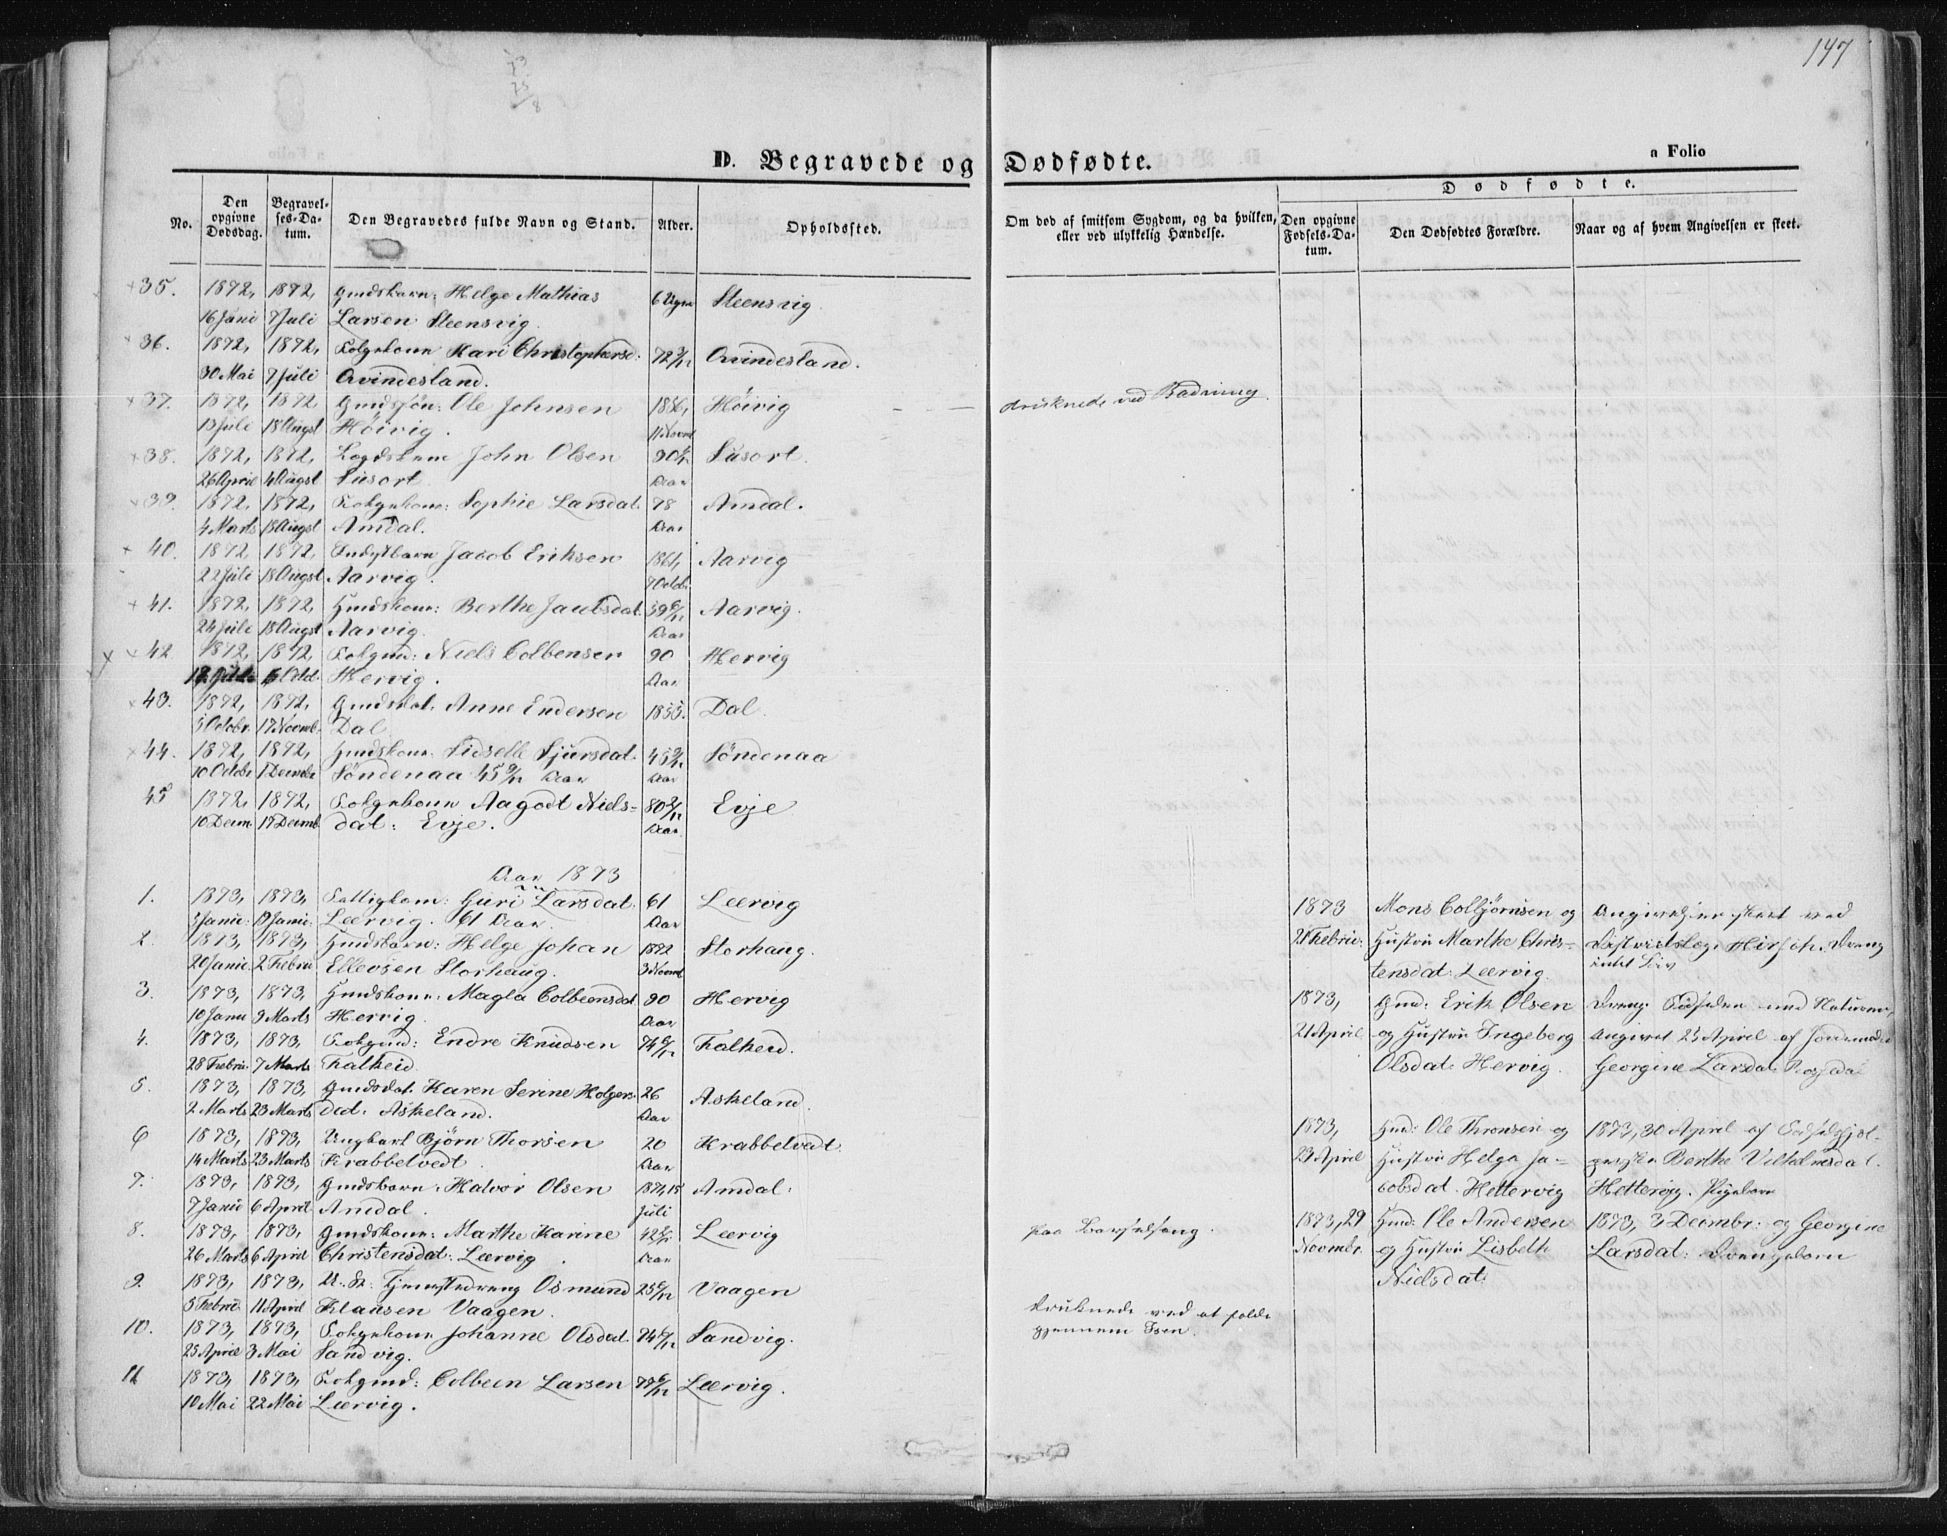 147
D. Begravede og Dødfødte.
a Folio
No.
Den opgivne Dødsdag.
Begravelses-Datum.
Den Begravedes fulde Navn og Stand.
Alder.
Opholdssted.
Om død af smitsom Sygdom, og da hvilken, eller ved ulykkelig Hændelse.
Dødfødte.
Den opgivne Fødsels-Datum.
Den Dødfødtes Forældre.
Naar og af hvem Angivelsen er skeet.
35. 1872, 1872, Gmdsbarn: Helge Mathias Steensvig
16 Juni 7 Juli Larsen Steensvig.
36. 1872, 1872, Folgekone Kari Christophersd: Qvindesland.
30 Mai 7 Juli Qvindesland.
37. 1872, 1872, Gmdssøn: Ole Johnsen 1856, Höivig druknede ved Badning.
13 Juli 18 Augst Höivig. 11 Novmb
38. 1872, 1872, John Olsen Susort.
26 April 4 Augst Susort. Aar
39. 1872, 1872, Folgekone: Sophie Larsdat. 78 Amdal.
4 Marts 18 Augst Amdal. Aar
40. 1872, 1872, Jacob Eriksen 1861, Aarvig
22 Juli 18 Augst Aarvig. Octob.
41. 1872, 1872, Gmdskone: Berthe Jacobsdat. 59 6/12 Aarvig.
24 Juli 18 Augst Aarvig. Aar
42 1872, 1872, Folgmd: Niels Colbensen 90 Hervig
6 Octob Hervig. Aar
43. 1872, 1872, Gmdsdat: Anne Endersen 1855. Dal.
5 Octobr. 17 Novmb. Dal.
44. 1872, 1872, Gmdskone Sidselle Sjursdat. 45 9/12 Söndenaa
10 Octobr 1 Decmbr Söndenaa 45 9/12 Aar Aar
45 1872, 1872, Folgekone Aagodt Niels- 80 2/12 Evje
10 Decm. 18 Decmb dat: Evje. Aar
Aar 1873
1. 1873, 1873, Guri Larsdat. 61 Leervig
5 Janu: 19 Janu: Leervig. 61 Aar. Aar
1873 Mons Colbjörnsen og Angivelsen skeet ved
21 Febru: Hustru Marthe Chris- Districtslæge Hirsch. Dreng
tensdat: Leervig.
2. 1873, 1873, Gmdsbarn: Helge Johan 1872 Storhaug.
20 Janu. 2 Febru Ellevsen Storhaug. 3 Novmb
3. 1873, 1873, Gmdskone: Magla Colbeensdat 90 Hervig
10 Janu 9 Marts Hervig. Aar
1873, Gmd: Erik Olsen
21 April og Hustru Ingeberg Angivet 25 April af Jordemoder
Olsdat: Hervig. Georgine Larsdat:
4. 1873, 1873, Folgmd: Endre Knudsen 74 6/12 Falkeid.
28 Febru 7 Marts Falkeid.
5. 1873, 1873, Gmdsdat: Karen Serine Holgers- 26 Askeland.
2 Marts 23 Marts dat: Askeland. Aar
6 1873, 1873, Ungkarl Bjørn Thorsen 20 Krabbetvedt
14 Marts 23 Marts Krabbetvedt. Aar
1873, Gmd: Ole Thronsen og 1873, 30 April af Fødselshjæl-
23 April Hustru Helga Ja- persken Berthe Vilhelmsdat.
cobsdat. Hettervig Hettervig. Pigebarn
7. 1873, 1873, Gmdsbarn: Halvor Olsen 1871, 15 Amdal.
7 Janu 6 April Amdal. Juli
8. 1873, 1873, Gmdskone: Marthe Karine Leervig paa Barselseng.
26 Marts 6 April Christensdat: Leervig. Aar
1873, 29 Gmd: Ole Andersen 1873, 3 Decmbr: og Georgine
Novmbr. og Hustru Lisbeth Larsdat: Drengebarn
Nielsdat:
9. 1873, 1873, Tjenestedreng Osmund 25 6/12 Vaagen
5 Febru. 11 April Klausen Vaagen.
druknede ved at falde
gjennem Isen.
10. 1873, 1873, Folgekone Johanne Olsdat. 74 6/12 Sandvig.
25 April 3 Mai Sandvig.
11 1873, 1873, Folgmd: Colbeen Larsen 77 6/12 Leervig.
10 Mai 22 Mai Leervig.